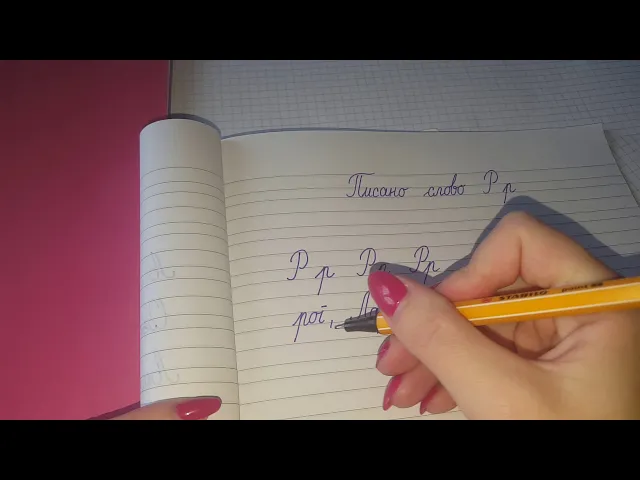 Писано слово Р р
Р р Рр Рр
рој,
STABILO